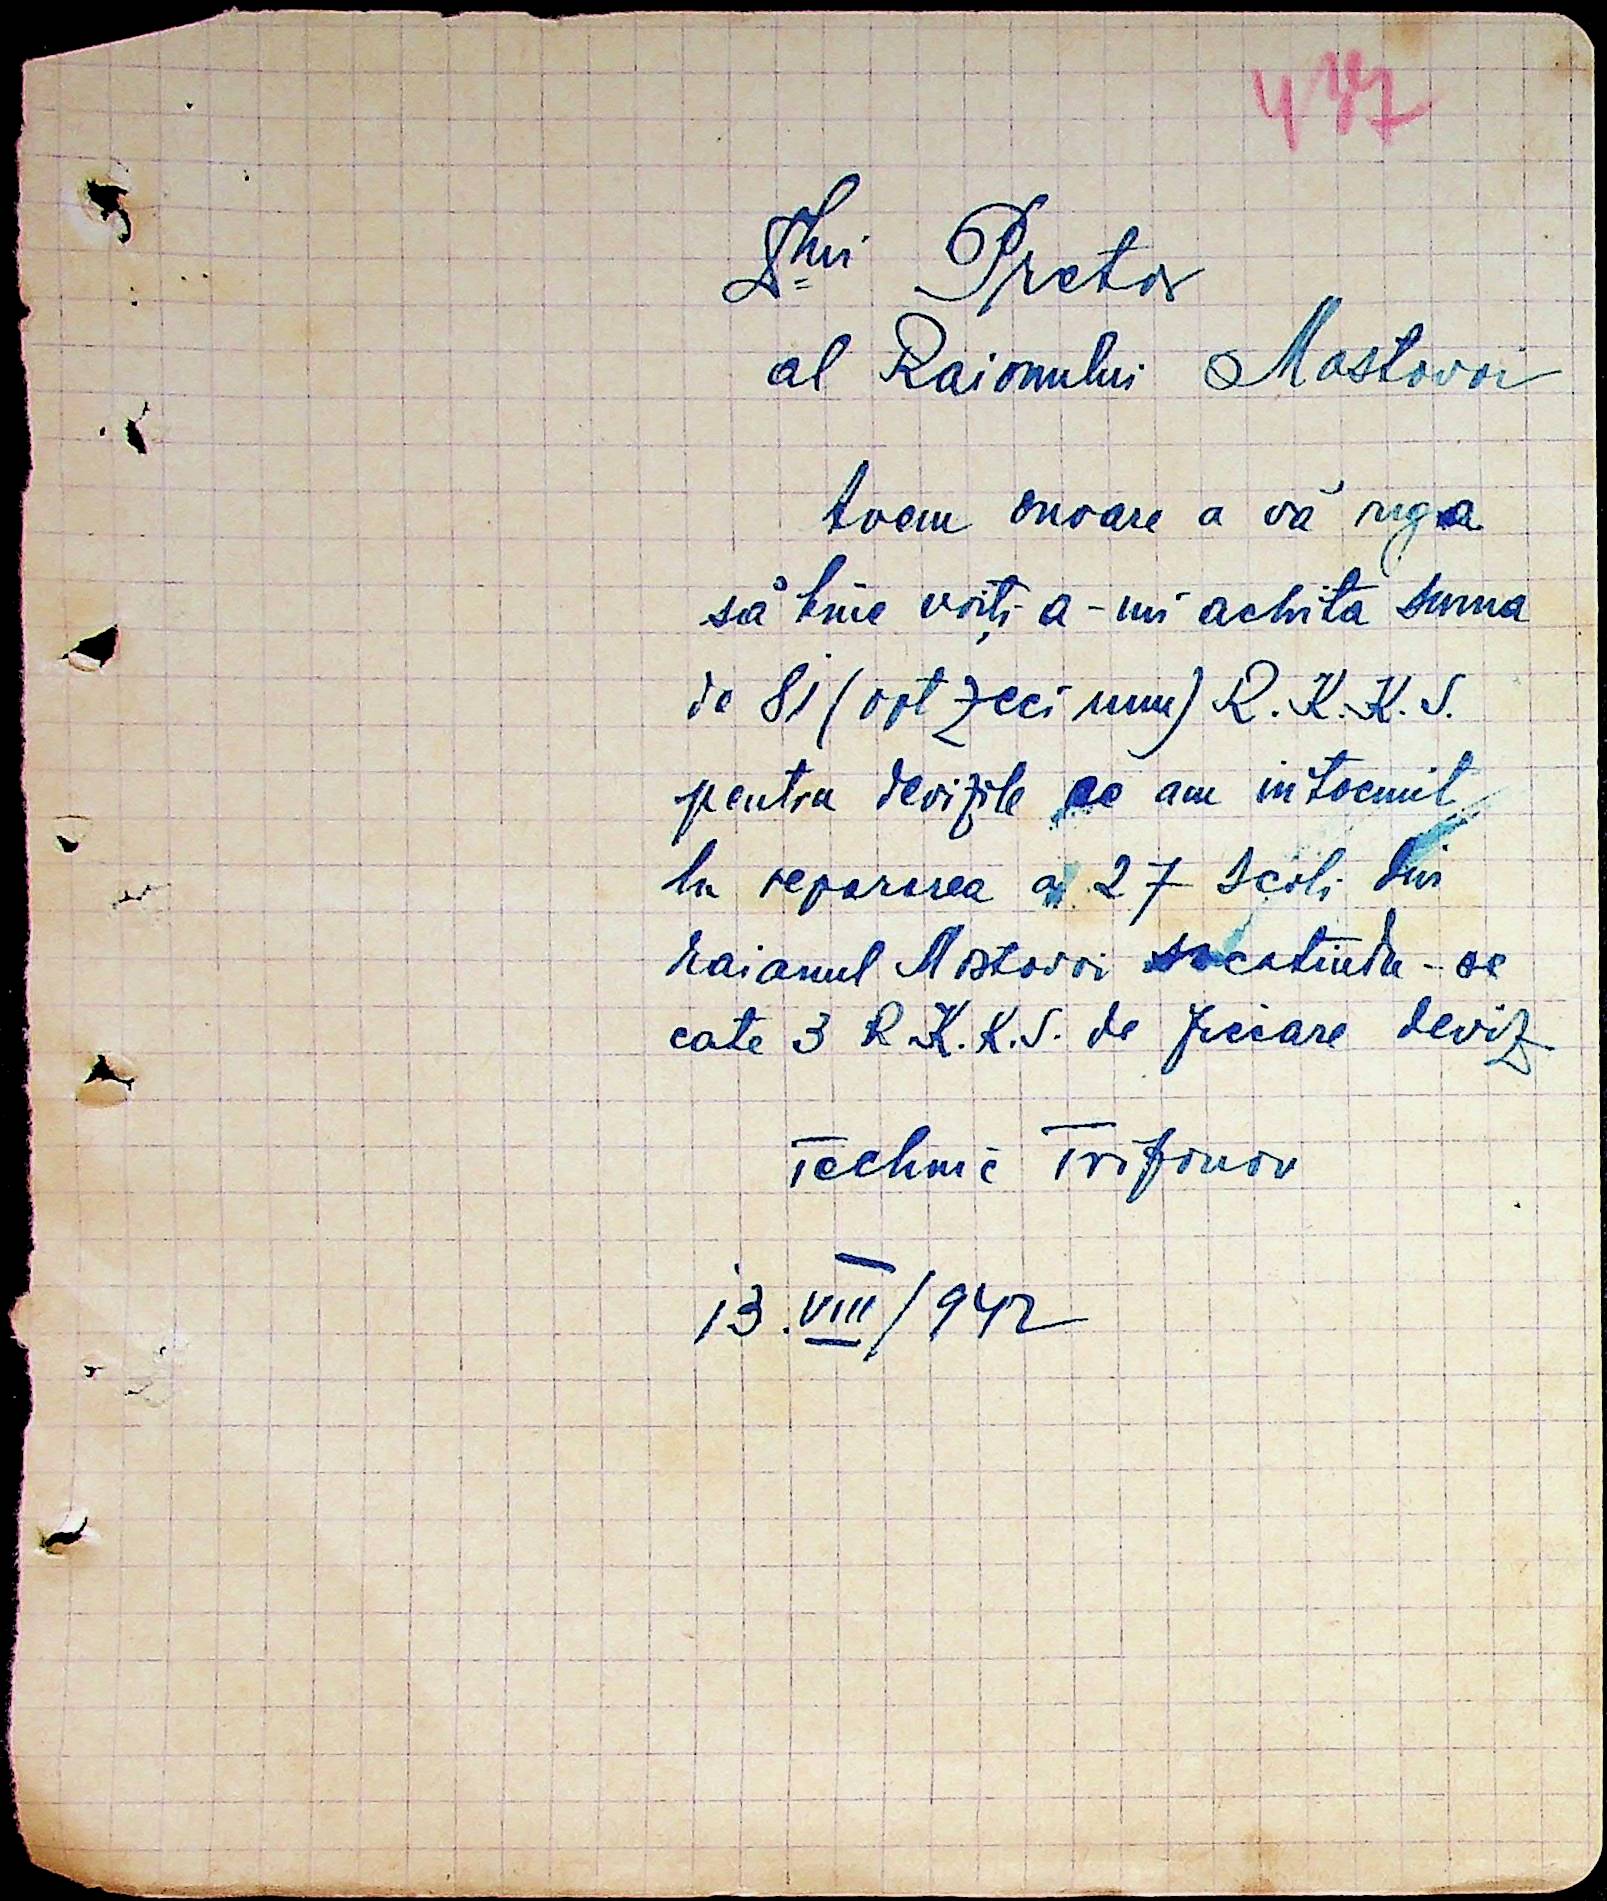 Dlui Pretor
al Raionului Mostovoi
Avem onoare a vă ruga
să bine voiți a-mi achita suma
de 81 (opt zeci unu) R.K.K.S.
pentru devizile ce am intocmit
la repararea a 27 școli din
raionul Mostovoi socotindu-se
cate 3 R.K.K.S. de fiecare deviz
Technic Trifonov
13.VIII/942